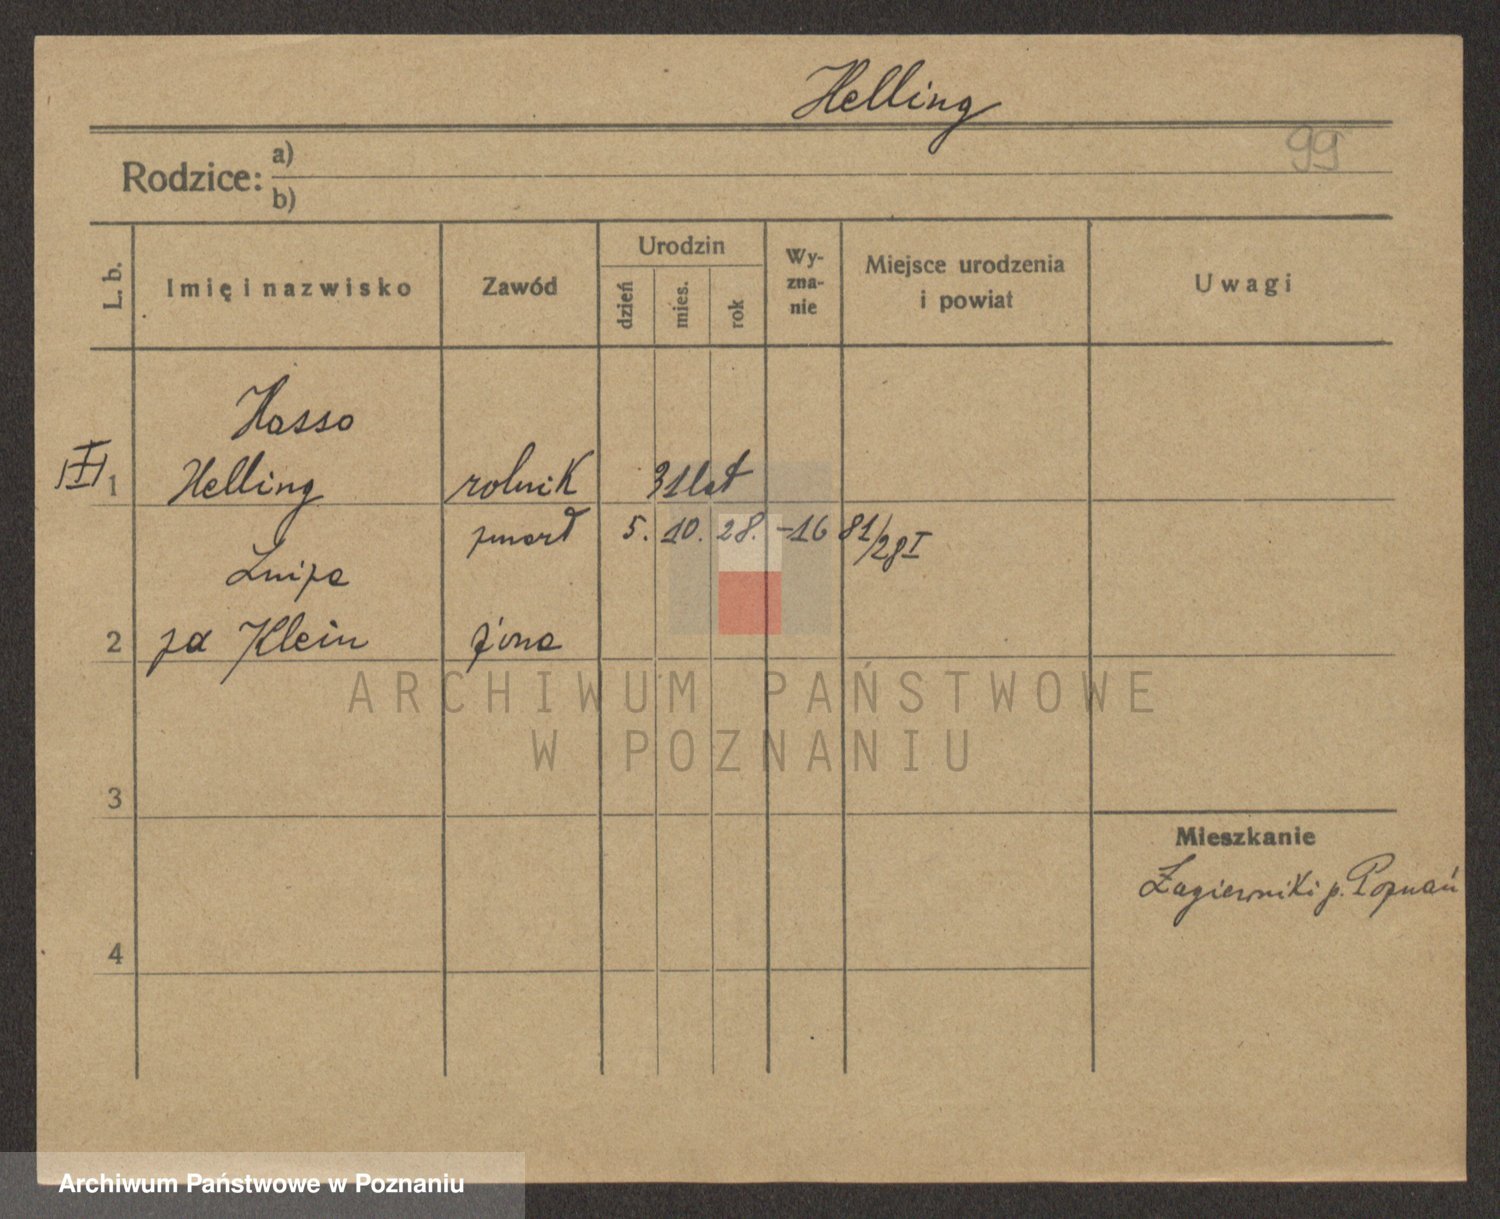 Helling
99
Rodzice: a)
b)
L. b.
Imię i nazwisko
Zawód
Urodzin
dzień
mies.
rok
Wy-
zna-
nie
Miejsce urodzenia
i powiat
Uwagi
Hasso
1 Helling rolnik 31 lat
zmarł 5. 10. 28. -16 81/28 I
Luiza
2 za Klein żona
3
4
Mieszkanie
Żagierniki p. Poznań
ARCHIWUM PAŃSTWOWE
W POZNANIU
Archiwum Państwowe w Poznaniu